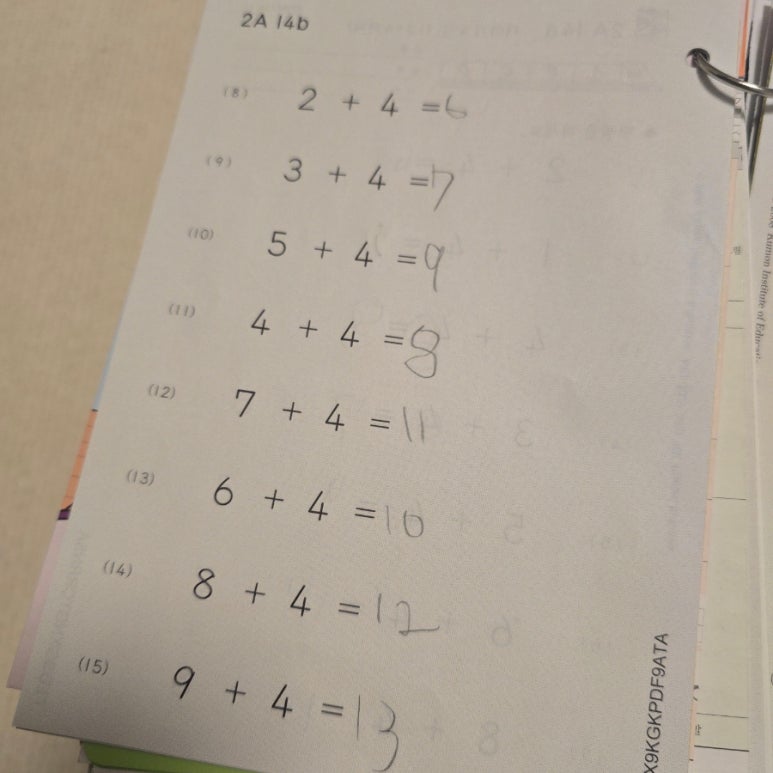 2A 14b
(8) 2 + 4 = 6
(9) 3 + 4 = 7
(10) 5 + 4 = 9
(11) 4 + 4 = 8
(12) 7 + 4 = 11
(13) 6 + 4 = 10
(14) 8 + 4 = 12
(15) 9 + 4 = 13
X9KGKPDF9ATA
Kumon Institute of